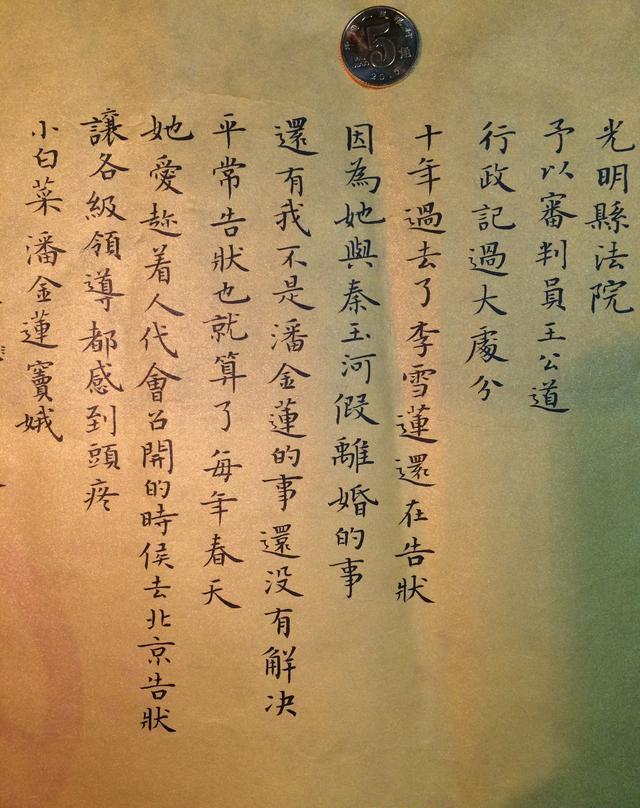 光明縣法院
予以審判員王公道
行政記過大處分
十年過去了李雪蓮還在告狀
因為她與秦玉河假離婚的事
還有我不是潘金蓮的事還没有解决
平常告狀也就算了每年春天
她愛趁着人代會召開的時侯去北京告狀
讓各級領導都感到頭疼
小白菜潘金蓮竇娥
5角